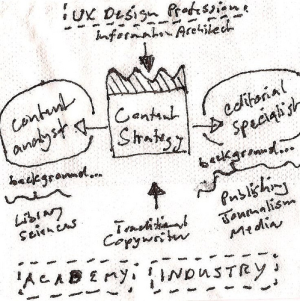 UX Design Professions
Information Architect
Content
analyst
Content
Strategy
editorial
specialist
background...
background...
Library
Sciences
Traditional
Copywriter
Publishing
Journalism
Media
ACADEMY
INDUSTRY